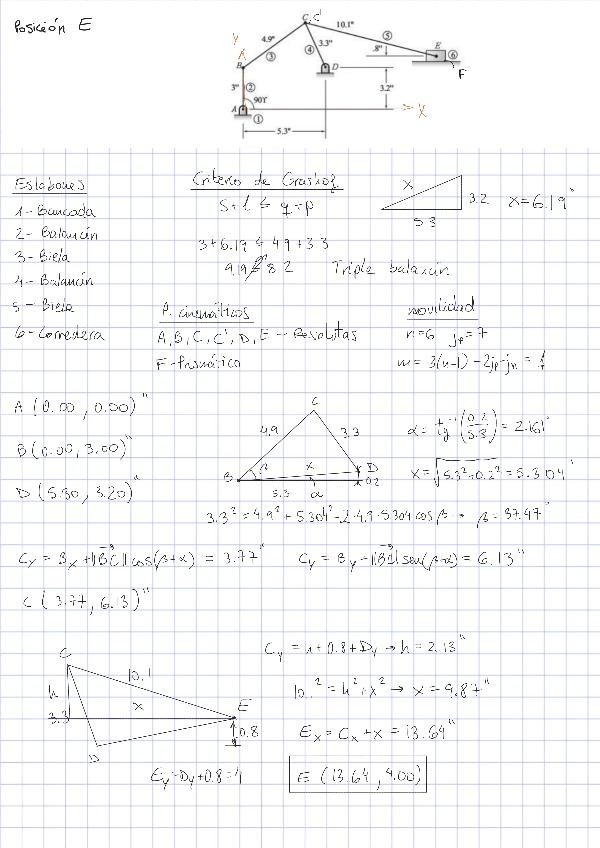 Posición E
Y
X
A
B
C, C'
D
E
F
4.9"
10.1"
3.3"
.8"
3"
3.2"
5.3"
90°
①
②
③
④
⑤
⑥
Eslabones
1- Bancada
2- Balancín
3- Biela
4- Balancín
5- Biela
6- Corredera
Criterio de Grashof
S+l ≤ q+p
3+6.19 ≤ 4.9+3.3
9.19 ≰ 8.2 Triple balancín
x
3.2
5.3
x=6.19"
P. cinemáticos
A, B, C, C', D, E - Revolutas
F- Prismático
movilidad
n=6 jp=7
m= 3(n-1) - 2jp-jn = 1
A (0.00, 0.00)"
B (0.00, 3.00)"
D (5.30, 3.20)"
C
4.9
3.3
B
β
x
D
0.2
5.3
α
α= tg⁻¹(0.2/5.3) = 2.161°
x= √5.3²+0.2² = 5.304"
3.3² = 4.9² + 5.304² - 2·4.9·5.304 cos β → β= 37.47°
Cy = Bx + ||BC|| cos(β+α) = 3.77"
Cy = By + ||BC|| sen(β+α) = 6.13"
C (3.77, 6.3)"
C
10.1
h
x
3.3
E
0.8
D
Ey = Dy+0.8 = 4
Cy = h+0.8+Dy → h= 2.13"
10.1² = h²+x² → x = 9.87"
Ex = Cx + x = 13.64"
E (13.64, 4.00)